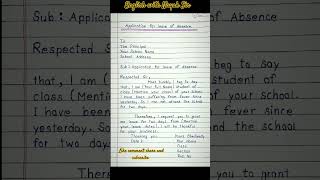 English with Nayab Jin
Application for leave of Absence
To
The Principal
Your School Name
School Address
Sub: Application for leave of Absence
Respected Sir,
Most humbly I beg to say
that, I am (Your Full Name) student of
class (Mention your class) of your School
I have been suffering from fever since
yesterday. So I can not attend the School
for two days.
Therefore, I request you to grant
me leave for two days from (Mention
your leave dates). I will be thankful
for your kindness.
Thanking you
Yours Obediently
Date:
Your Name
Class
Section
Roll No
like comment share and
subscribe
Sub: Application
of Absence
Respected S
beg to say
that, I am
student of
class (Men
f your School.
I have
fever since
yesterday. So
nd the school
for two days